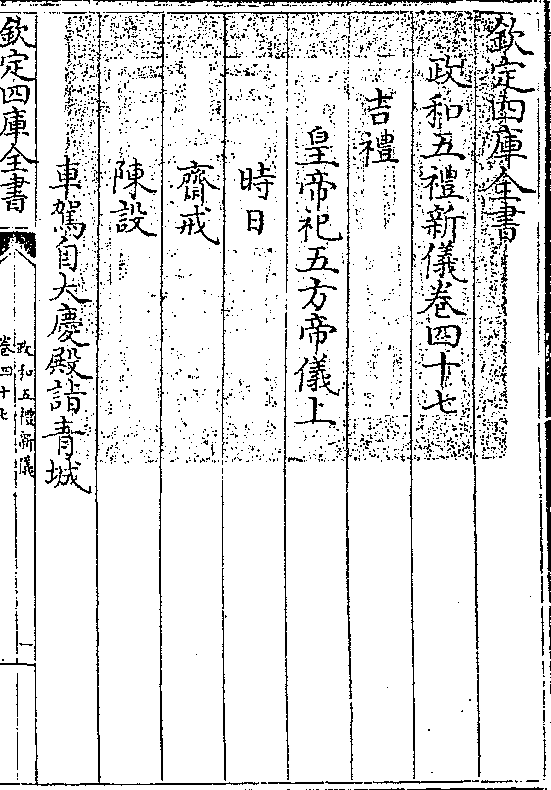 欽定四庫全書
政和五禮新儀卷四十七
吉禮
皇帝祀五方帝儀上
時日
齋戒
陳設
車駕自大慶殿詣青城
欽定四庫全書
政和五禮新儀
卷四十七
一